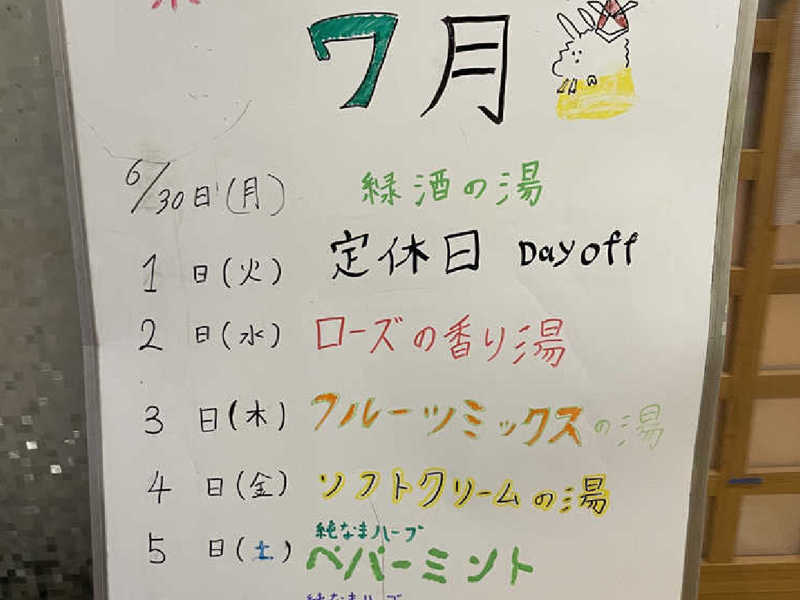 7月
6/30日(月) 緑酒の湯
1日(火) 定休日 Day off
2日(水) ローズの香り湯
3日(木) フルーツミックスの湯
4日(金) ソフトクリームの湯
純なまハーブ
5日(土) ペパーミント
純なまハーブ